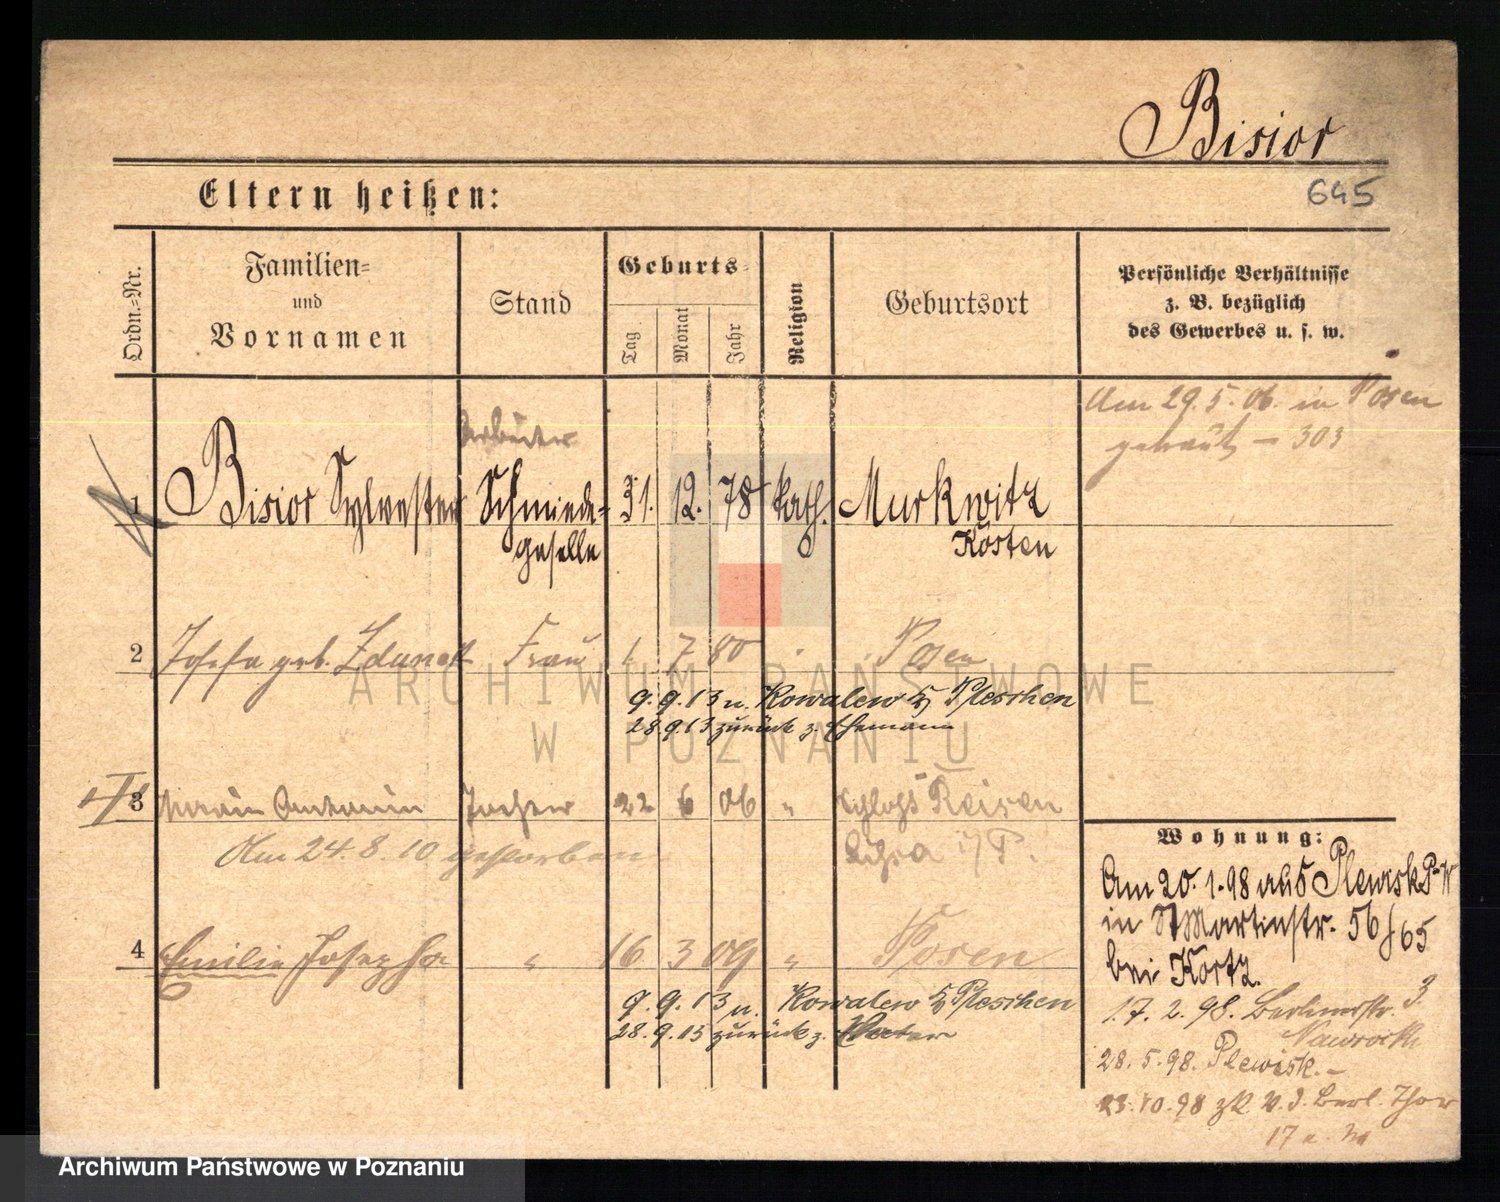 Bisior
645
Eltern heißen:
Ordn.-Nr.
Familien-
und
Vornamen
Stand
Geburts-
Tag
Monat
Jahr
Religion
Geburtsort
Persönliche Verhältnisse
z. B. bezüglich
des Gewerbes u. s. w.
Am 29.5.06. in Posen
getraut – 303
Arbeiter
1 Bisior Sylvester Schmiede- 31. 12. 78 kath. Murkwitz
geselle Kosten
2 Josefa geb. Frau 1. 7 80 Posen
9.9.13 n. Kowalew Pleschen
28.9.13 zurück z. Ehemann
3 Tochter 22 6 06 " Schloss Reisen
Am 24.8.10 gestorben Lissa i/P.
4 Emilie Josepha " 16 3 09 " Posen
9.9.13 n. Kowalew Pleschen
28.9.13 zurück z. Vater
Wohnung:
Am 20.1.98 aus Plewisk P.W
in St Martinstr. 56/65
bei Kortz.
17.2.98. Berlinerstr. 3
Nawrocki
28.5.98. Plewisk.–
23.10.98 zk v. d. Berl. Thor
17
ARCHIWUM PAŃSTWOWE
W POZNANIU
Archiwum Państwowe w Poznaniu